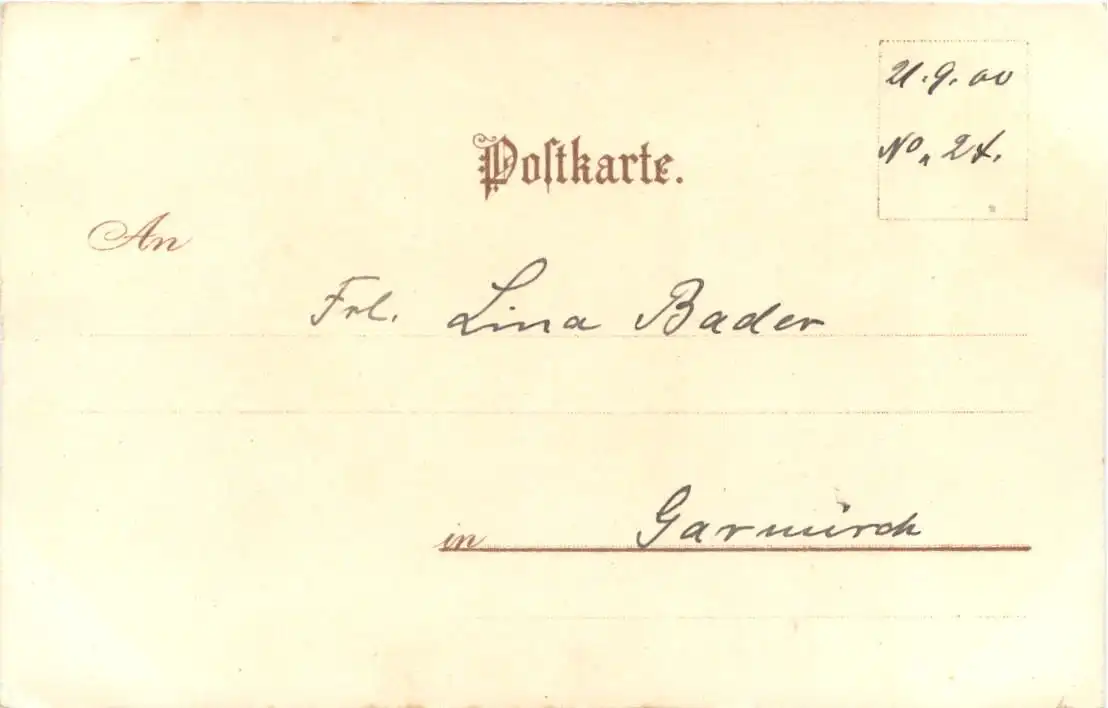 21.9.00
No. 24.
Poſtkarte.
An
Frl. Lina Bader
in Garmisch